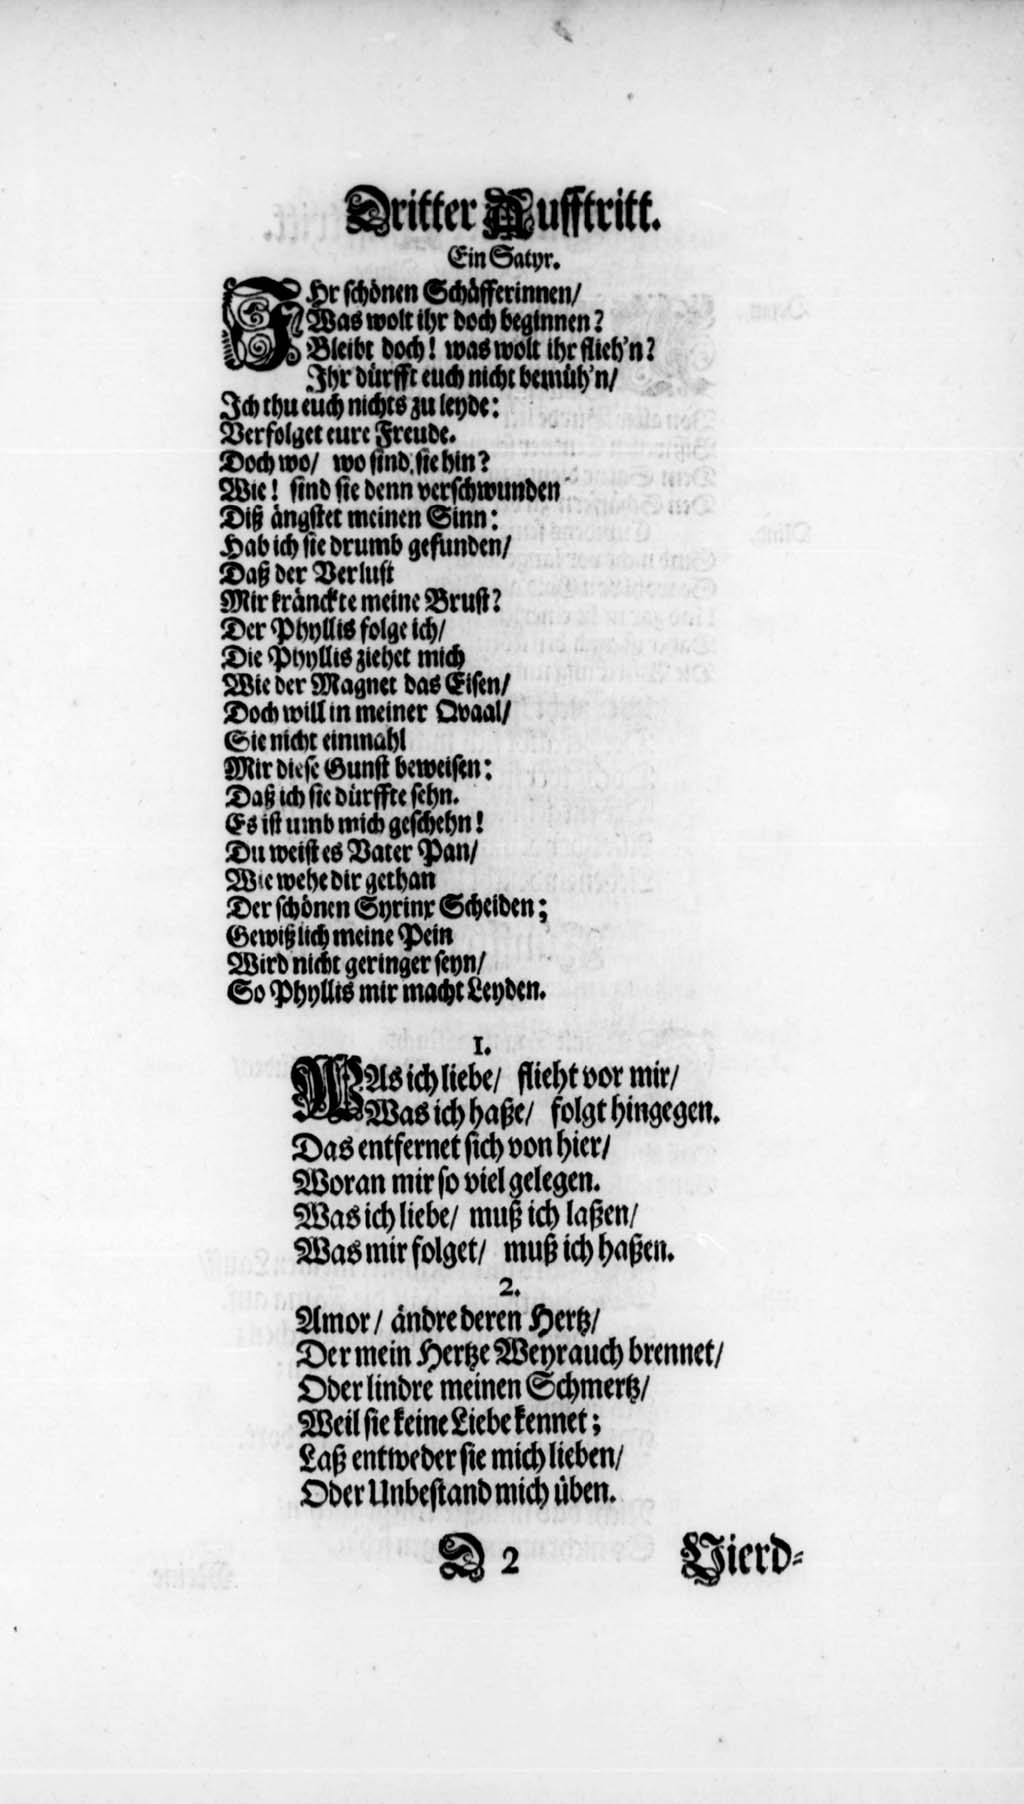 Dritter Aufftritt.
Ein Satyr.
IHr schönen Schäfferinnen/
Was wolt ihr doch beginnen?
Bleibt doch! was wolt ihr flieh'n?
Ihr dürfft euch nicht bemüh'n/
Ich thu euch nichts zu leyde:
Verfolget eure Freude.
Doch wo/ wo sind sie hin?
Wie! sind sie denn verschwunden
Diß ängstet meinen Sinn:
Hab ich sie drumb gefunden/
Daß der Verlust
Mir kränckte meine Brust?
Der Phyllis folge ich/
Die Phyllis ziehet mich
Wie der Magnet das Eisen/
Doch will in meiner Qvaal/
Sie nicht einmahl
Mir diese Gunst beweisen:
Daß ich sie dürffte sehn.
Es ist umb mich geschehn!
Du weist es Vater Pan/
Wie wehe dir gethan
Der schönen Syrinx Scheiden;
Gewißlich meine Pein
Wird nicht geringer seyn/
So Phyllis mir macht Leyden.
1.
WAs ich liebe/ flieht vor mir/
Was ich haße/ folgt hingegen.
Das entfernet sich von hier/
Woran mir so viel gelegen.
Was ich liebe/ muß ich laßen/
Was mir folget/ muß ich haßen.
2.
Amor/ ändre deren Hertz/
Der mein Hertze Weyrauch brennet/
Oder lindre meinen Schmertz/
Weil sie keine Liebe kennet;
Laß entweder sie mich lieben/
Oder Unbestand mich üben.
D 2 Vierd-